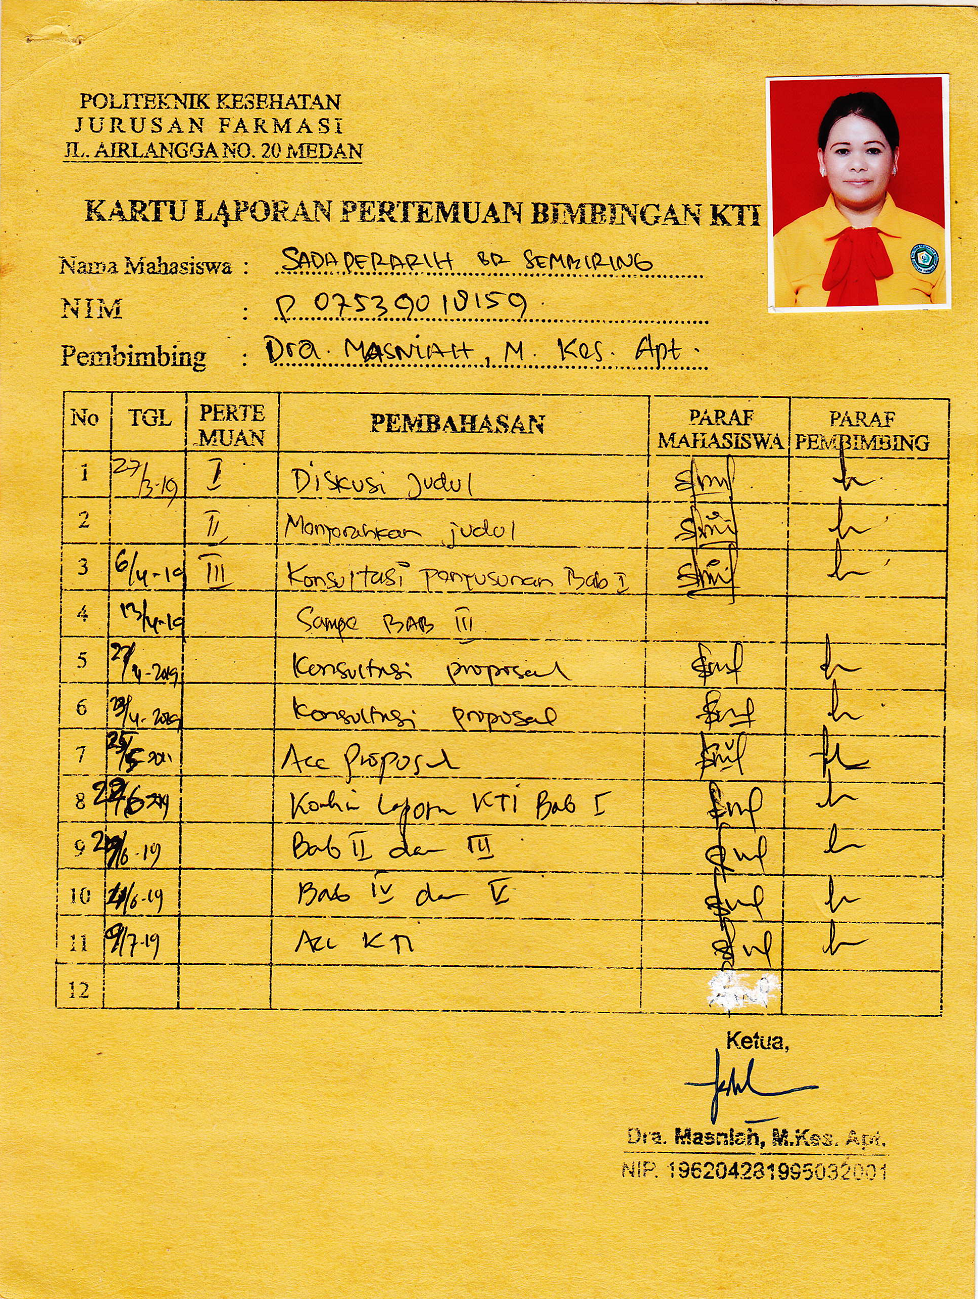 POLITEKNIK KESEHATAN
JURUSAN FARMASI
JL. AIRLANGGA NO. 20 MEDAN
KARTU LAPORAN PERTEMUAN BIMBINGAN KTI
Nama Mahasiswa : SADAPERARIH BR SEMBIRING
NIM : P 07539018159
Pembimbing : Dra. MASNIAH, M. Kes. Apt.
No TGL PERTE MUAN PEMBAHASAN PARAF MAHASISWA PARAF PEMBIMBING
1 27/3-19 I Diskusi Judul
2 II Menyerahkan judul
3 6/4-19 III Konsultasi Penyusunan Bab I
4 13/4-19 Sampe BAB III
5 27/4-2019 Konsultasi proposal
6 /4-2019 Konsultasi proposal
7 Acc Proposal
8 Laporn KTI Bab I
9 /6-19 Bab II dan III
10 /6-19 Bab IV dan V
11 9/7-19 Acc KTI
12
Ketua,
Dra. Masniah, M.Kes. Apt.
NIP. 196204281995032001